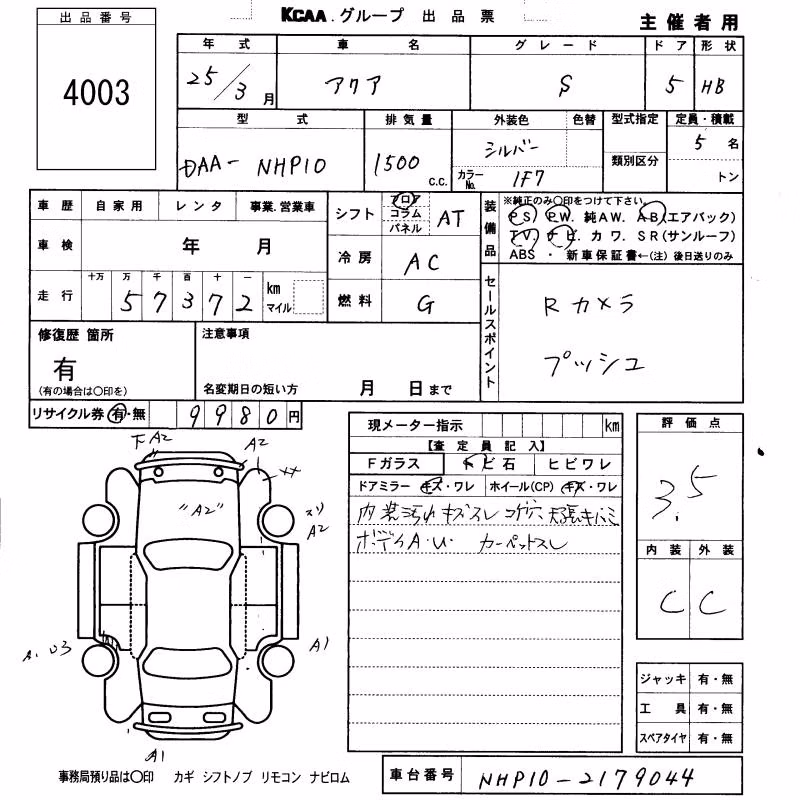 出品番号
4003
KCAA.グループ 出品票
主催者用
年式 車名 グレード ドア 形状
25/3月 アクア S 5 HB
型式 排気量 外装色 色替 型式指定 定員・積載
DAA- NHP10 1500 c.c. シルバー 類別区分 5名
カラーNo. 1F7 トン
車歴 自家用 レンタ 事業.営業車
車検 年 月
走行 十万 万 千 百 十 一 km マイル
57372
シフト フロア コラム パネル AT
冷房 AC
燃料 G
装備品
※純正のみ〇印をつけて下さい。
PS. PW. 純AW. AB(エアバック)
TV. ナビ. カワ. SR(サンルーフ)
ABS ・ 新車保証書←(注) 後日送りのみ
セールスポイント
Rカメラ
プッシュ
修復歴 箇所
有
(有の場合は〇印を)
注意事項
名変期日の短い方 月 日まで
リサイクル券 有・無 9980円
現メーター指示 km
【査定員記入】
Fガラス トビ石 ヒビワレ
ドアミラー キズ・ワレ ホイール(CP) キズ・ワレ
内装汚れ キズ スレ コゲ穴 天張キバミ
ボディA.U. カーペットスレ
評価点
3.5
内装 外装
C C
下A2 A2
"A2"
スリ
A2
A1
A. U3
A1
ジャッキ 有・無
工具 有・無
スペアタイヤ 有・無
事務局預り品は〇印 カギ シフトノブ リモコン ナビロム
車台番号 NHP10-2179044